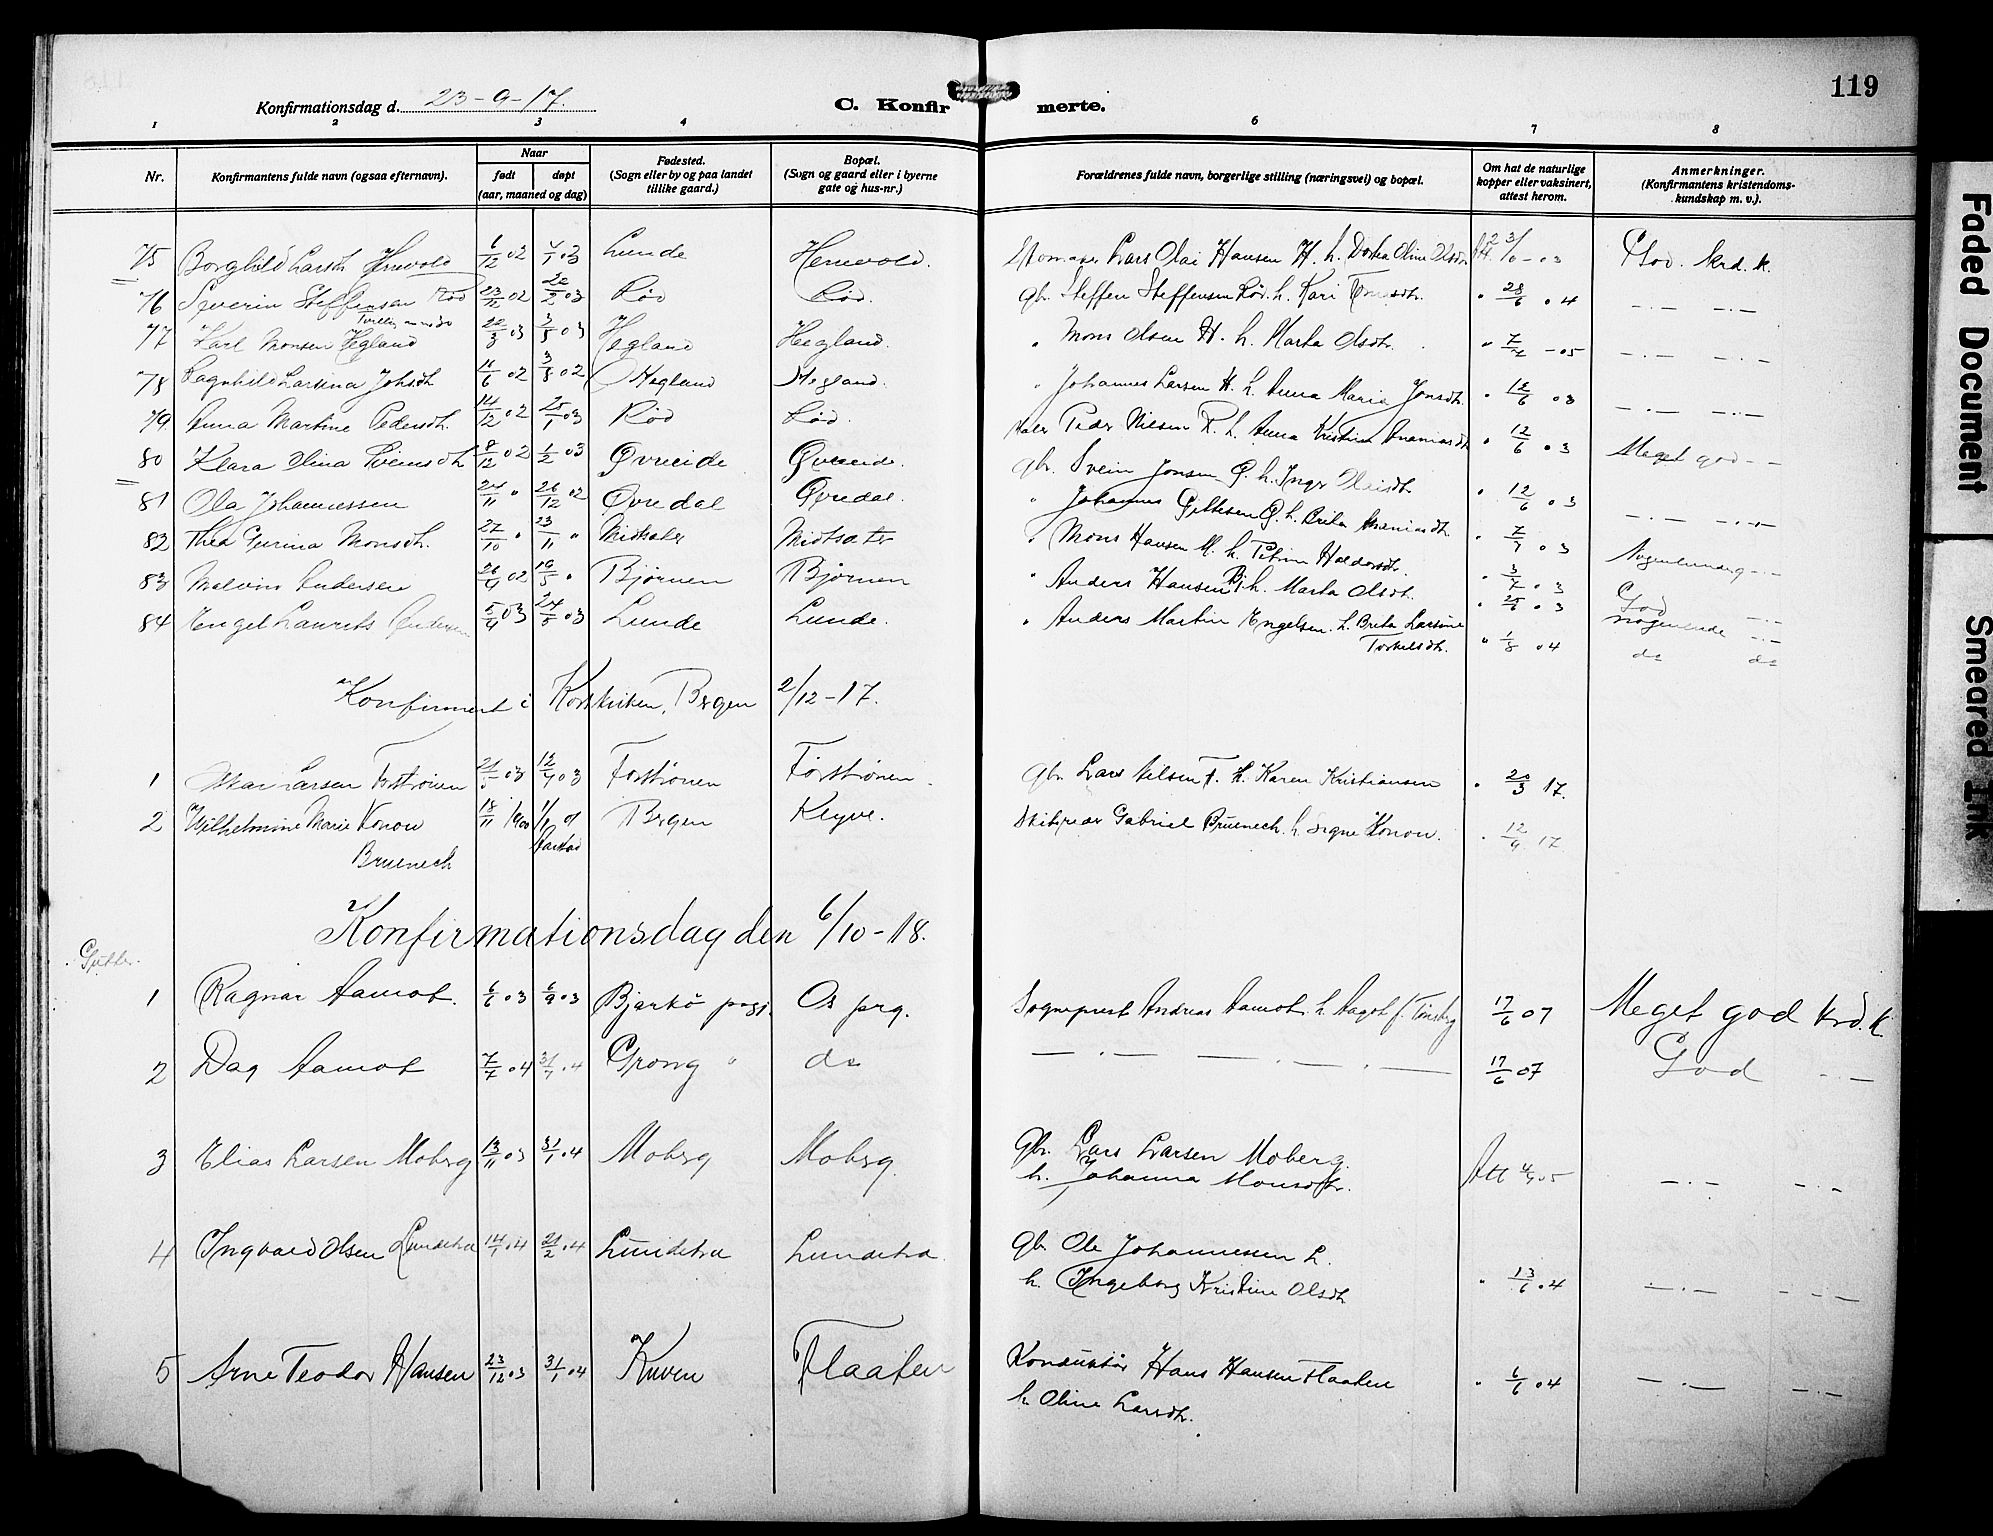 119
Konfirmationsdag d. 23-9-17.
C. Konfirmerte.
1 2 3 4 6 7 8
Nr.
Konfirmantens fulde navn (ogsaa efternavn).
Naar
født døpt
(aar, maaned og dag)
Fødested.
(Sogn eller by og paa landet
tillike gaard.)
Bopæl.
(Sogn og gaard eller i byerne
gate og hus-nr.)
Forældrenes fulde navn, borgerlige stilling (næringsvei) og bopæl.
Om hat de naturlige
kopper eller vaksinert,
attest herom.
Anmerkninger.
(Konfirmantens kristendoms-
kundskap m. v.).
75 Borghild Larsdtr Hervold 6/12 02 4/1 03 Lunde Hervold. Lars Olai Hansen H. h. Dorthea Oline Olsdtr God. krd. k.
76 Severin Steffensen Rød 23/12 02 22/2 03 Rød Rød. Gbr. Steffen Steffensen Rød. h. Kari " 28/6 04 - . - - . -
77 Karl Monsen Hegland 22/3 03 3/5 03 Hegland Hegland. " Mons Olsen H. h. Marta Olsdtr. " 7/7 - 05 - . - - . -
78 Ragnhild Larsina Johsdtr 11/6 02 3/8 02 Hegland Hegland. " Johannes Larsen H. h. Anna Maria Jonsdtr. " 12/6 03 - . - - . -
79 Anna Martine Pedersdtr. 14/12 02 25/1 03 Rød Rød. Maler Peder Nilsen R. h. Anna Kristina Ananiasdtr " 12/6 03 Meget god - -
80 Klara Olina Sveinsdtr 8/12 02 1/2 03 Øvreeide Øvreeide. Gbr. Svein Jonsen Ø. h. Inger Olaisdtr " 12/6 03 - . - - . -
81 Ola Johannessen 24/11 " 26/12 02 Øvredal Øvredal. " Johannes Ø. h. Brita Ananiasdtr. " 7/7 03
82 Thea Gurina Monsdtr. 27/10 " 23/11 " Midtsæter Midtsæter " Mons Hansen M. h. Petrine Haldorsdtr. " 3/7 03
83 Malvin Andersen 26/4 02 19/5 " Bjørnen Bjørnen " Anders Hansen Bj. h. Marta Olsdtr. " 25/6 03 God
84 Engel Laurits Andersen 5/4 03 24/5 03 Lunde Lunde. " Anders Martin Engelsen. h. Brita Larsine
Torkelsdtr. " 1/8 04 do do
Konfirmert i Korskirken, Bergen 2/12-17.
1 Larsen Forstrønen 21/5 03 12/7 03 Forstrønen Forstrønen. Gbr. Lars Nilsen F. H. Karen Kristiansen " 20/3 17.
2 Wilhelmine Marie Konow 18/11 1900 Bergen Klyve. Skibsreder Gabriel Bruenech. h. Signe Konow. " 12/9 17
Bruenech
Konfirmationsdag den 6/10-18.
Gutter.
1 Ragnar Aamot. 6/6 03 6/9 03 Bjarkø prgj. Os prg. Sogneprest Andreas Aamot h. Aagot f. Tønsberg 17/6 07 Meget god krd. k.
2 Dag Aamot 7/7 04 31/7 04 Grong " do - . - - . - . - 17/6 07 God - . -
3 Elias Larsen Moberg 13/11 03 31/1 04 Moberg Moberg. Gbr. Lars Larsen Moberg.
h. Johanna Monsdtr. Att 4/7 05 - . - - . -
4 Ingvald Olsen Lundetræ 14/1 04 21/2 04 Lundetræ Lundetræ. Gbr. Ole Johannessen L.
h. Ingeborg Kristine Olsdtr " 13/6 04 - . - - - -
5 Arne Teodor Hansen 23/12 03 31/1 04 Kuven Flaaten Konduktør Hans Hansen Flaaten
h. Oline Larsdtr. " 6/6 04 - . - - . -
Faded Document
Smeared Ink